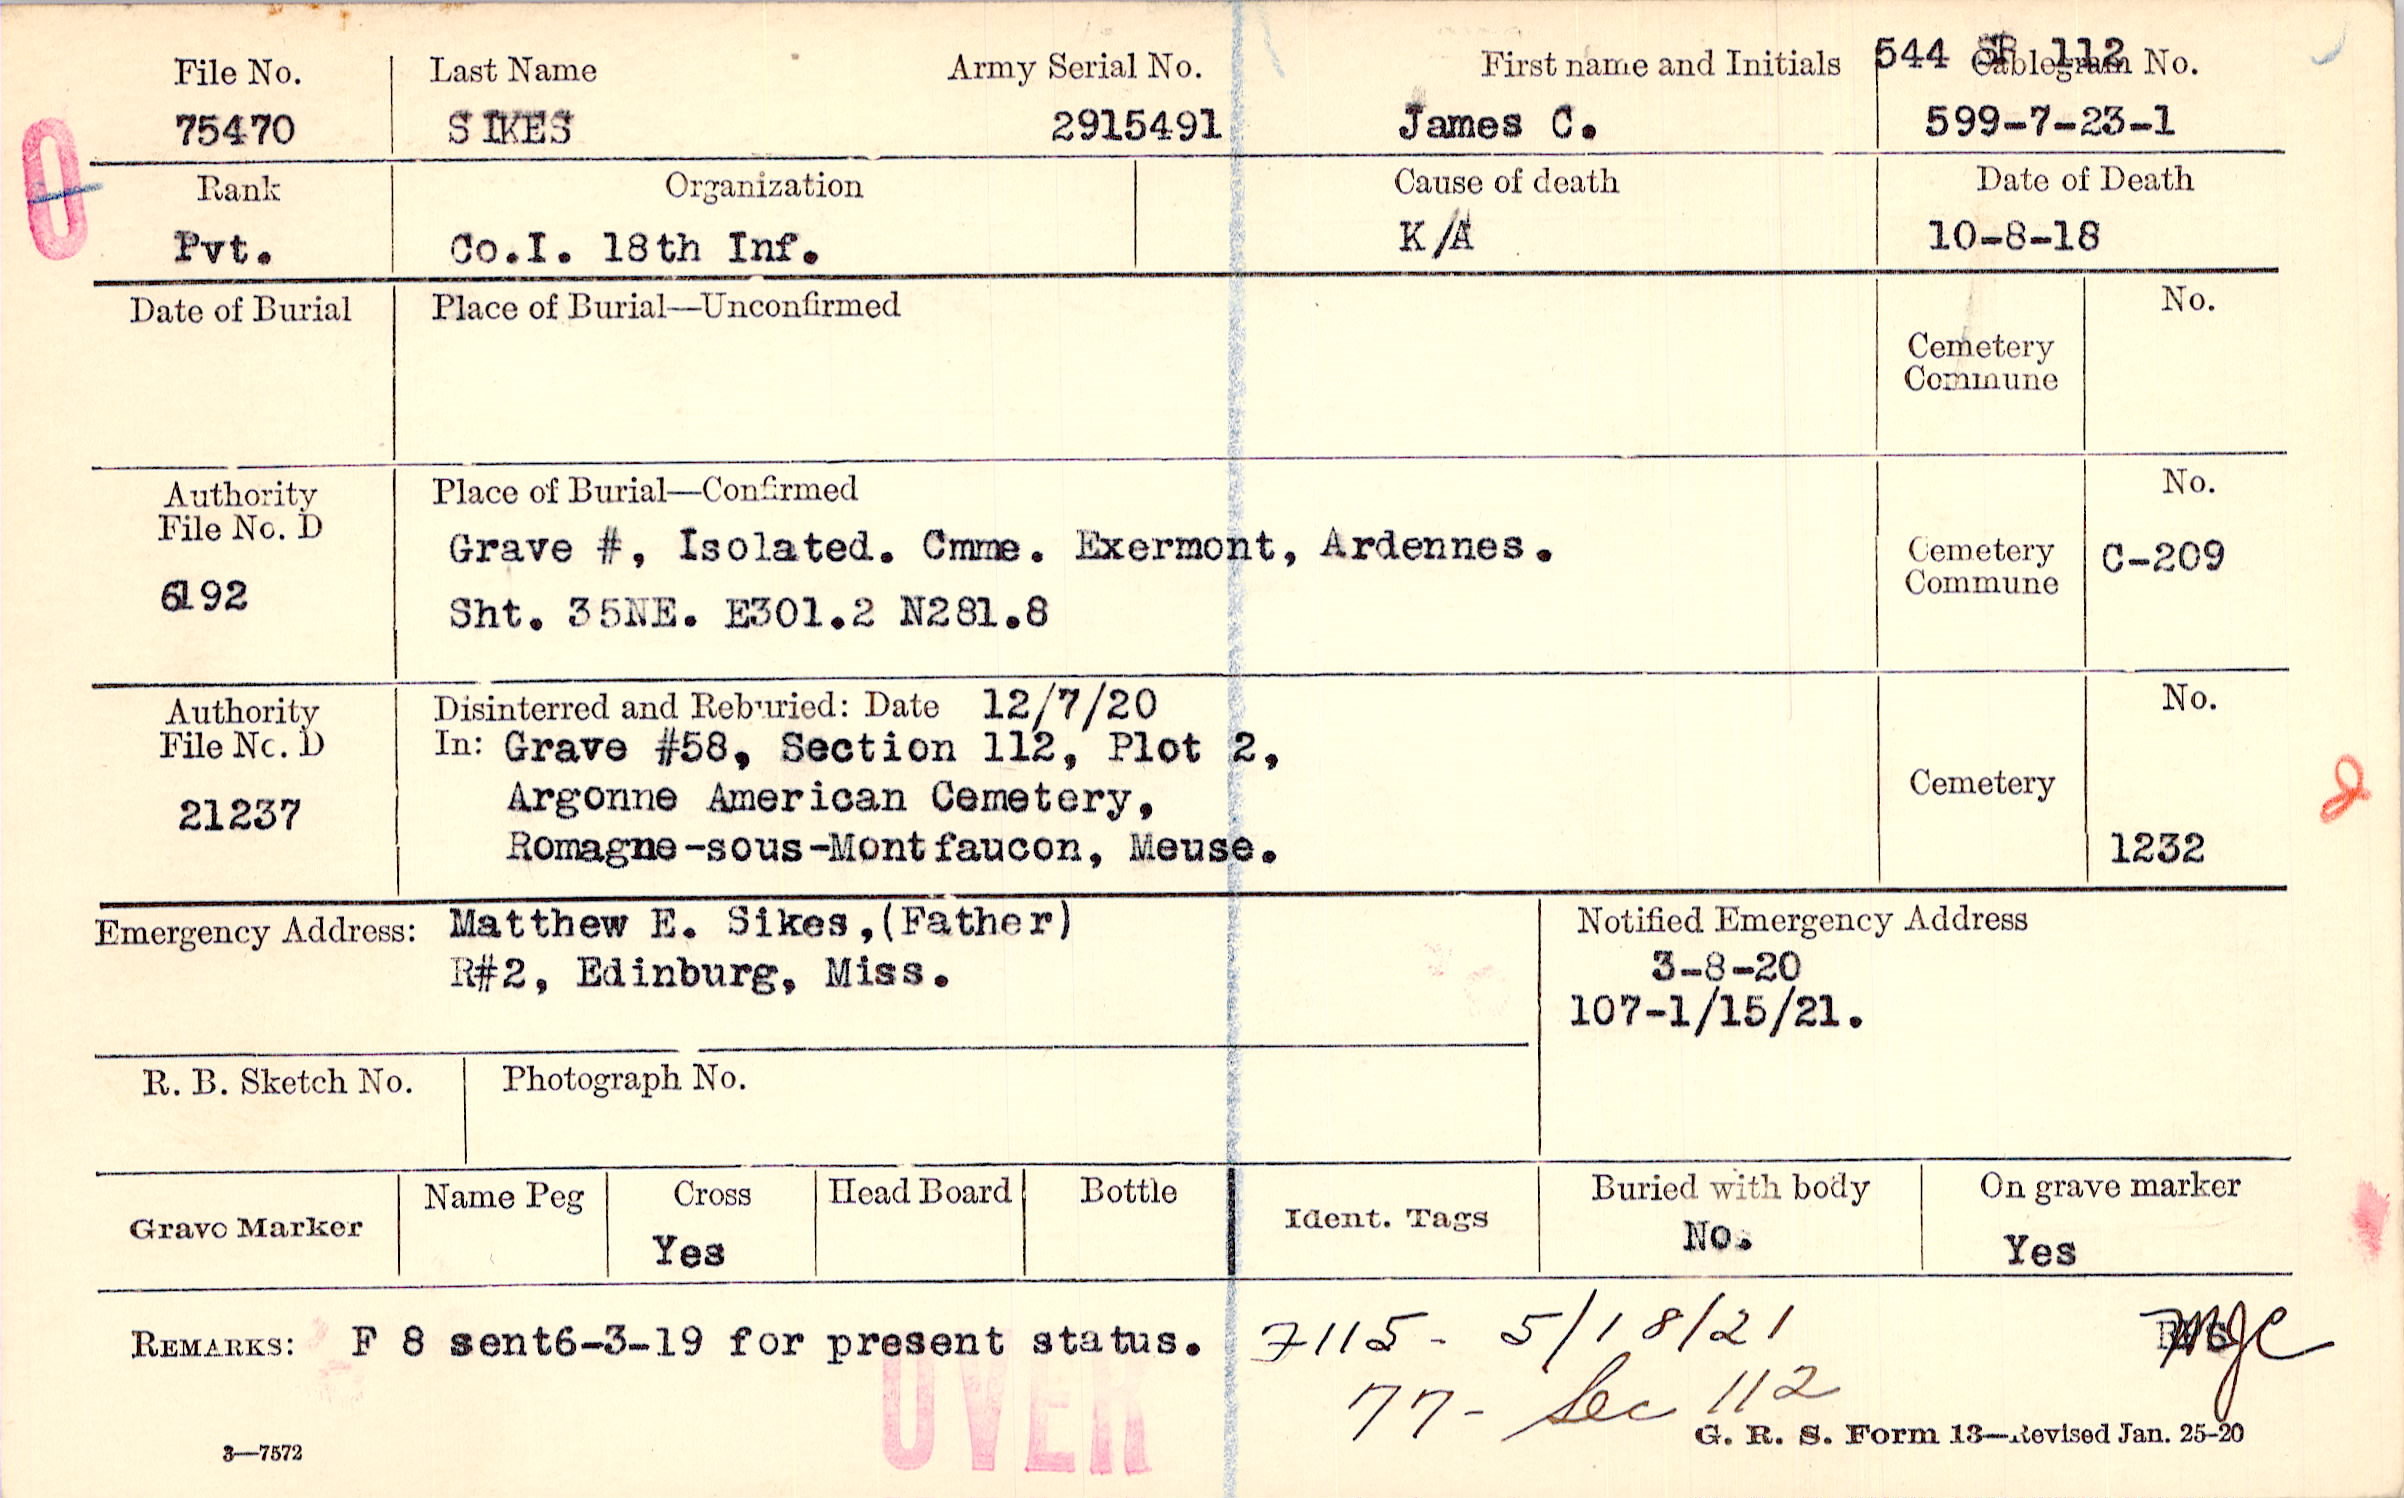 544 SR 112
File No. Last Name Army Serial No. First name and Initials Cablegram No.
75470 SIKES 2915491 James C. 599-7-23-1
Rank Organization Cause of death Date of Death
Pvt. Co.I. 18th Inf. K/A 10-8-18
Date of Burial Place of Burial—Unconfirmed No.
Cemetery
Commune
Authority Place of Burial—Confirmed No.
File No. D
Grave #, Isolated. Cmme. Exermont, Ardennes. Cemetery C-209
Commune
6192 Sht. 35NE. E301.2 N281.8
Authority Disinterred and Reburied: Date 12/7/20 No.
File No. D In: Grave #58, Section 112, Plot 2,
21237 Argonne American Cemetery, Cemetery
Romagne-sous-Montfaucon, Meuse. 1232
Emergency Address: Matthew E. Sikes,(Father) Notified Emergency Address
R#2, Edinburg, Miss. 3-8-20
107-1/15/21.
R. B. Sketch No. Photograph No.
Grave Marker Name Peg Cross Head Board Bottle Ident. Tags Buried with body On grave marker
Yes No. Yes
REMARKS: F 8 sent6-3-19 for present status. 7115- 5/18/21
77- Sec 112
OVER
3—7572 G. R. S. Form 13—Revised Jan. 25-20